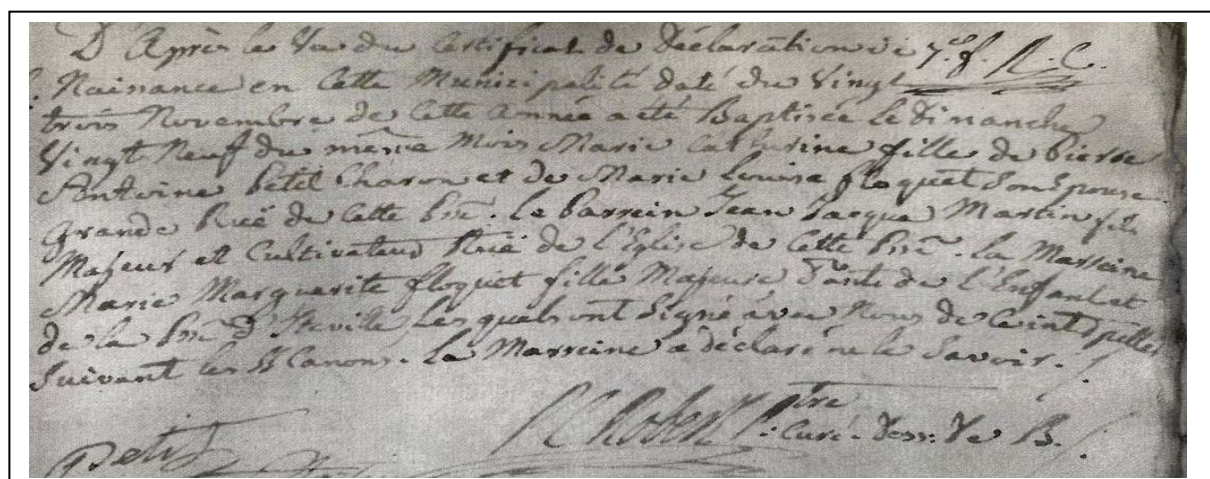 D'Après la Vue du Certificat de Déclaration de 7.e f. R. C.
Naissance en Cette Municipalité daté du Vingt
trois Novembre de Cette Année a été Baptisée Le Dimanche
Vingt Neuf du même Mois Marie Catherine fille de Pierre
Antoine Petit Charon et de Marie Louise floquet Son Epouse
Grande Ruë de Cette Psse. Le Parrein Jean Jacque Martin fils
Majeur et Cultivateur Ruë de l'Eglise de Cette Psse. la Marreine
Marie Marguerite floquet fille Majeure Tante de L'Enfant et
de la Psse Lesquels ont Signé avec Nous de Ce intèpellés
Suivant les SS Canons. La Marreine a déclaré ne le Savoir.
Petit Robert Ptre
Curé. B.